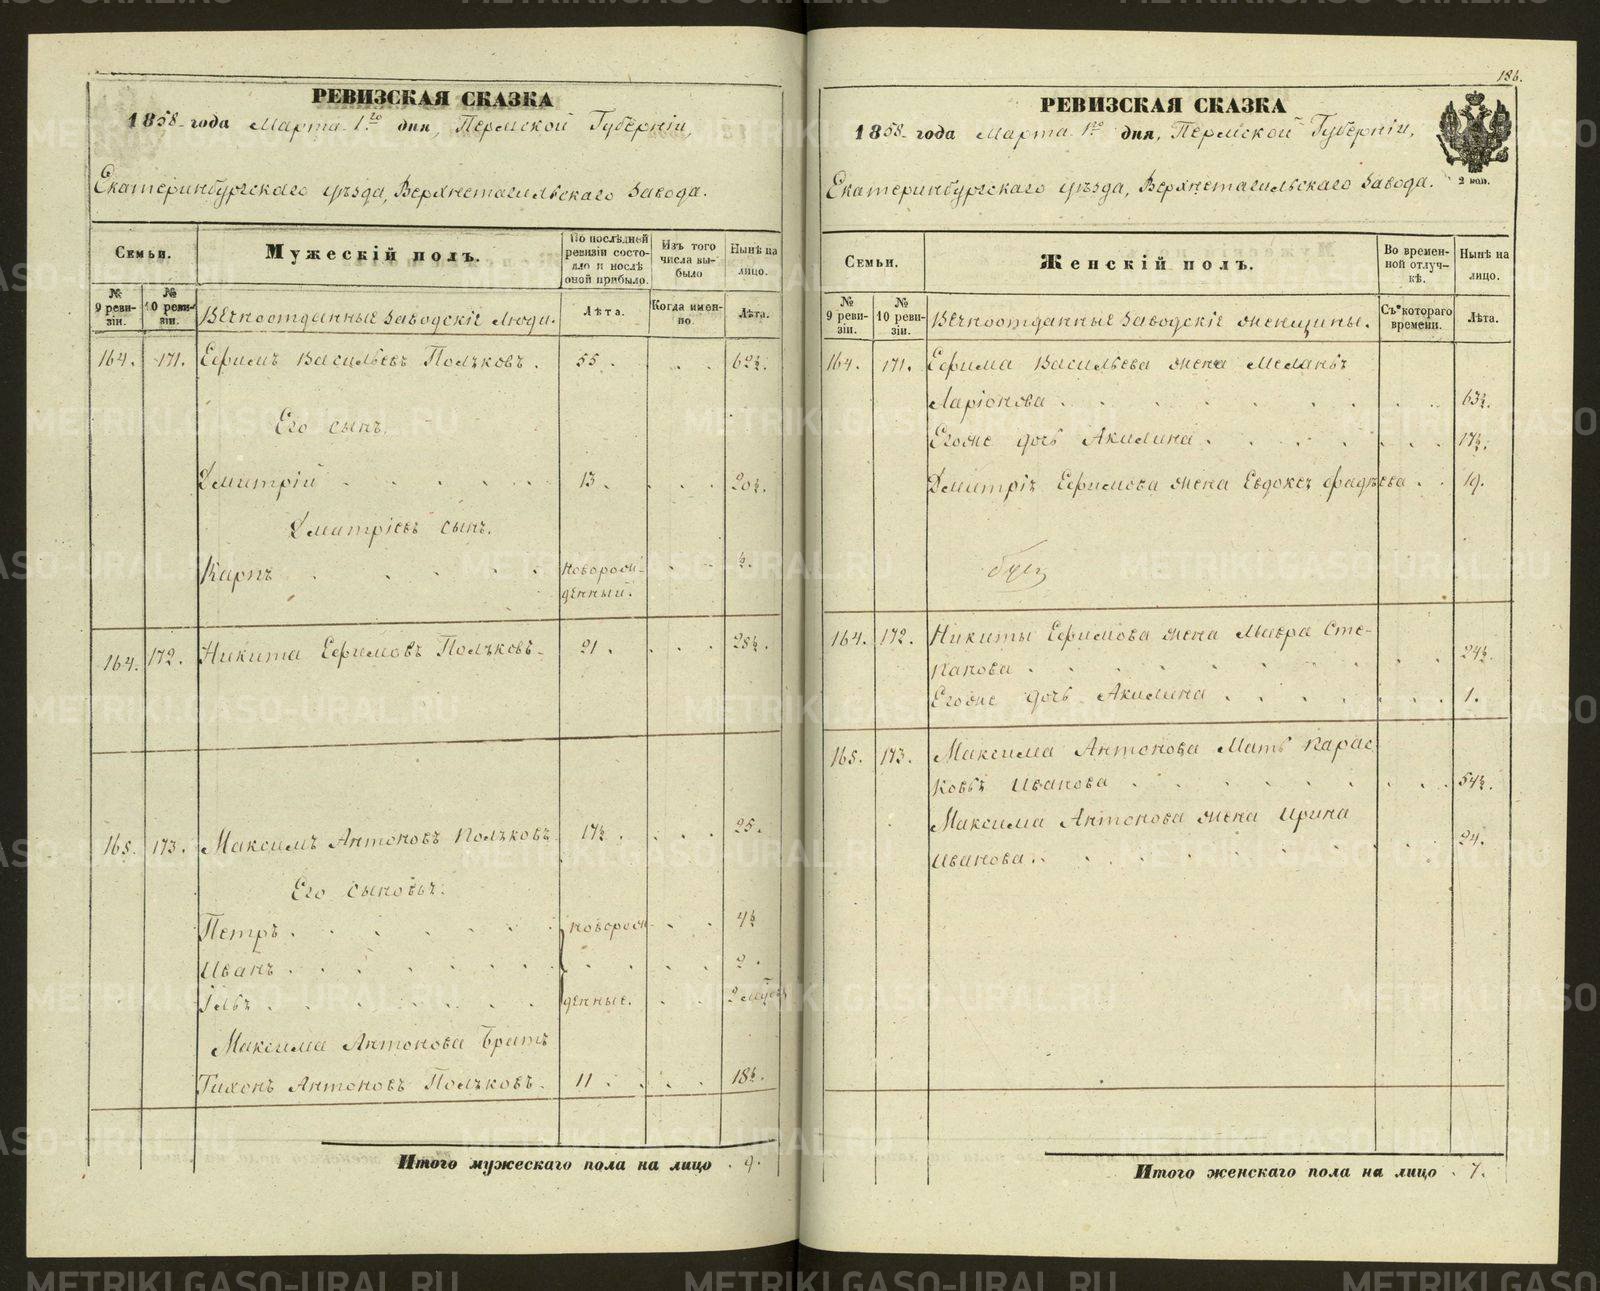 РЕВИЗСКАЯ СКАЗКА
1858 года Марта 1го дня, Пермской Губерніи,
Екатеринбургскаго уѣзда, Верхнетагильскаго Завода.
Семьи.
Мужескій полъ.
По послѣдней ревизіи состояло и послѣ оной прибыло.
Изъ того числа выбыло
Нынѣ на лицо.
№ 9 ревизіи.
№ 10 ревизіи.
Вечноотданные Заводскіе Люди.
Лѣта.
Когда именно.
Лѣта.
164. 171. Ефимъ Васильевъ Полѣковъ. 55 . . . 62½.
Его сынъ.
Дмитрій . . . . . 13. . . . 20½.
Дматріевъ сынъ.
Карпъ . . . . . новорож- . . . ½.
денный.
164. 172. Никита Ефимовъ Полѣковъ. 21. . . . 28½.
165. 173. Максимъ Антоновъ Полѣковъ 17½. . . . 25.
Его сыновья.
Петръ . . . . . новорож- . . 4½
Иванъ . . . . . . . . . 2.
. . . . . денные. . . 2
Максима Антонова Братъ
Тихонъ Антоновъ Полѣковъ. 11 . . . . 18½.
Итого мужескаго пола на лицо . 9.
186.
РЕВИЗСКАЯ СКАЗКА
1858 года Марта 1го дня, Пермской Губерніи,
2 коп.
Екатеринбургскаго уѣзда, Верхнетагильскаго Завода.
Семьи.
Женскій полъ.
Во временной отлучкѣ.
Нынѣ на лицо.
№ 9 ревизіи.
№ 10 ревизіи.
Вечноотданные Заводскіе женщины.
Съ котораго времени.
Лѣта.
164. 171. Ефима Васильева жена Меланья
Ларіонова . . . . . . . . . 63½.
Егоже дочь Акилина . . . . . . . . 17½.
Дмитрія Ефимова жена Евдокея Фадѣева . . 19.
164. 172. Никиты Ефимова жена Мавра Сте-
панова . . . . . . . . . 24½.
Егоже дочь Акилина . . . . . . . 1.
165. 173. Максима Антонова Мать Парас-
ковья Иванова . . . . . . . . . 54½.
Максима Антонова жена Ирина
Иванова . . . . . . . . . 24.
Итого женскаго пола на лицо . 7.
METRIKI.GASO-URAL.RU